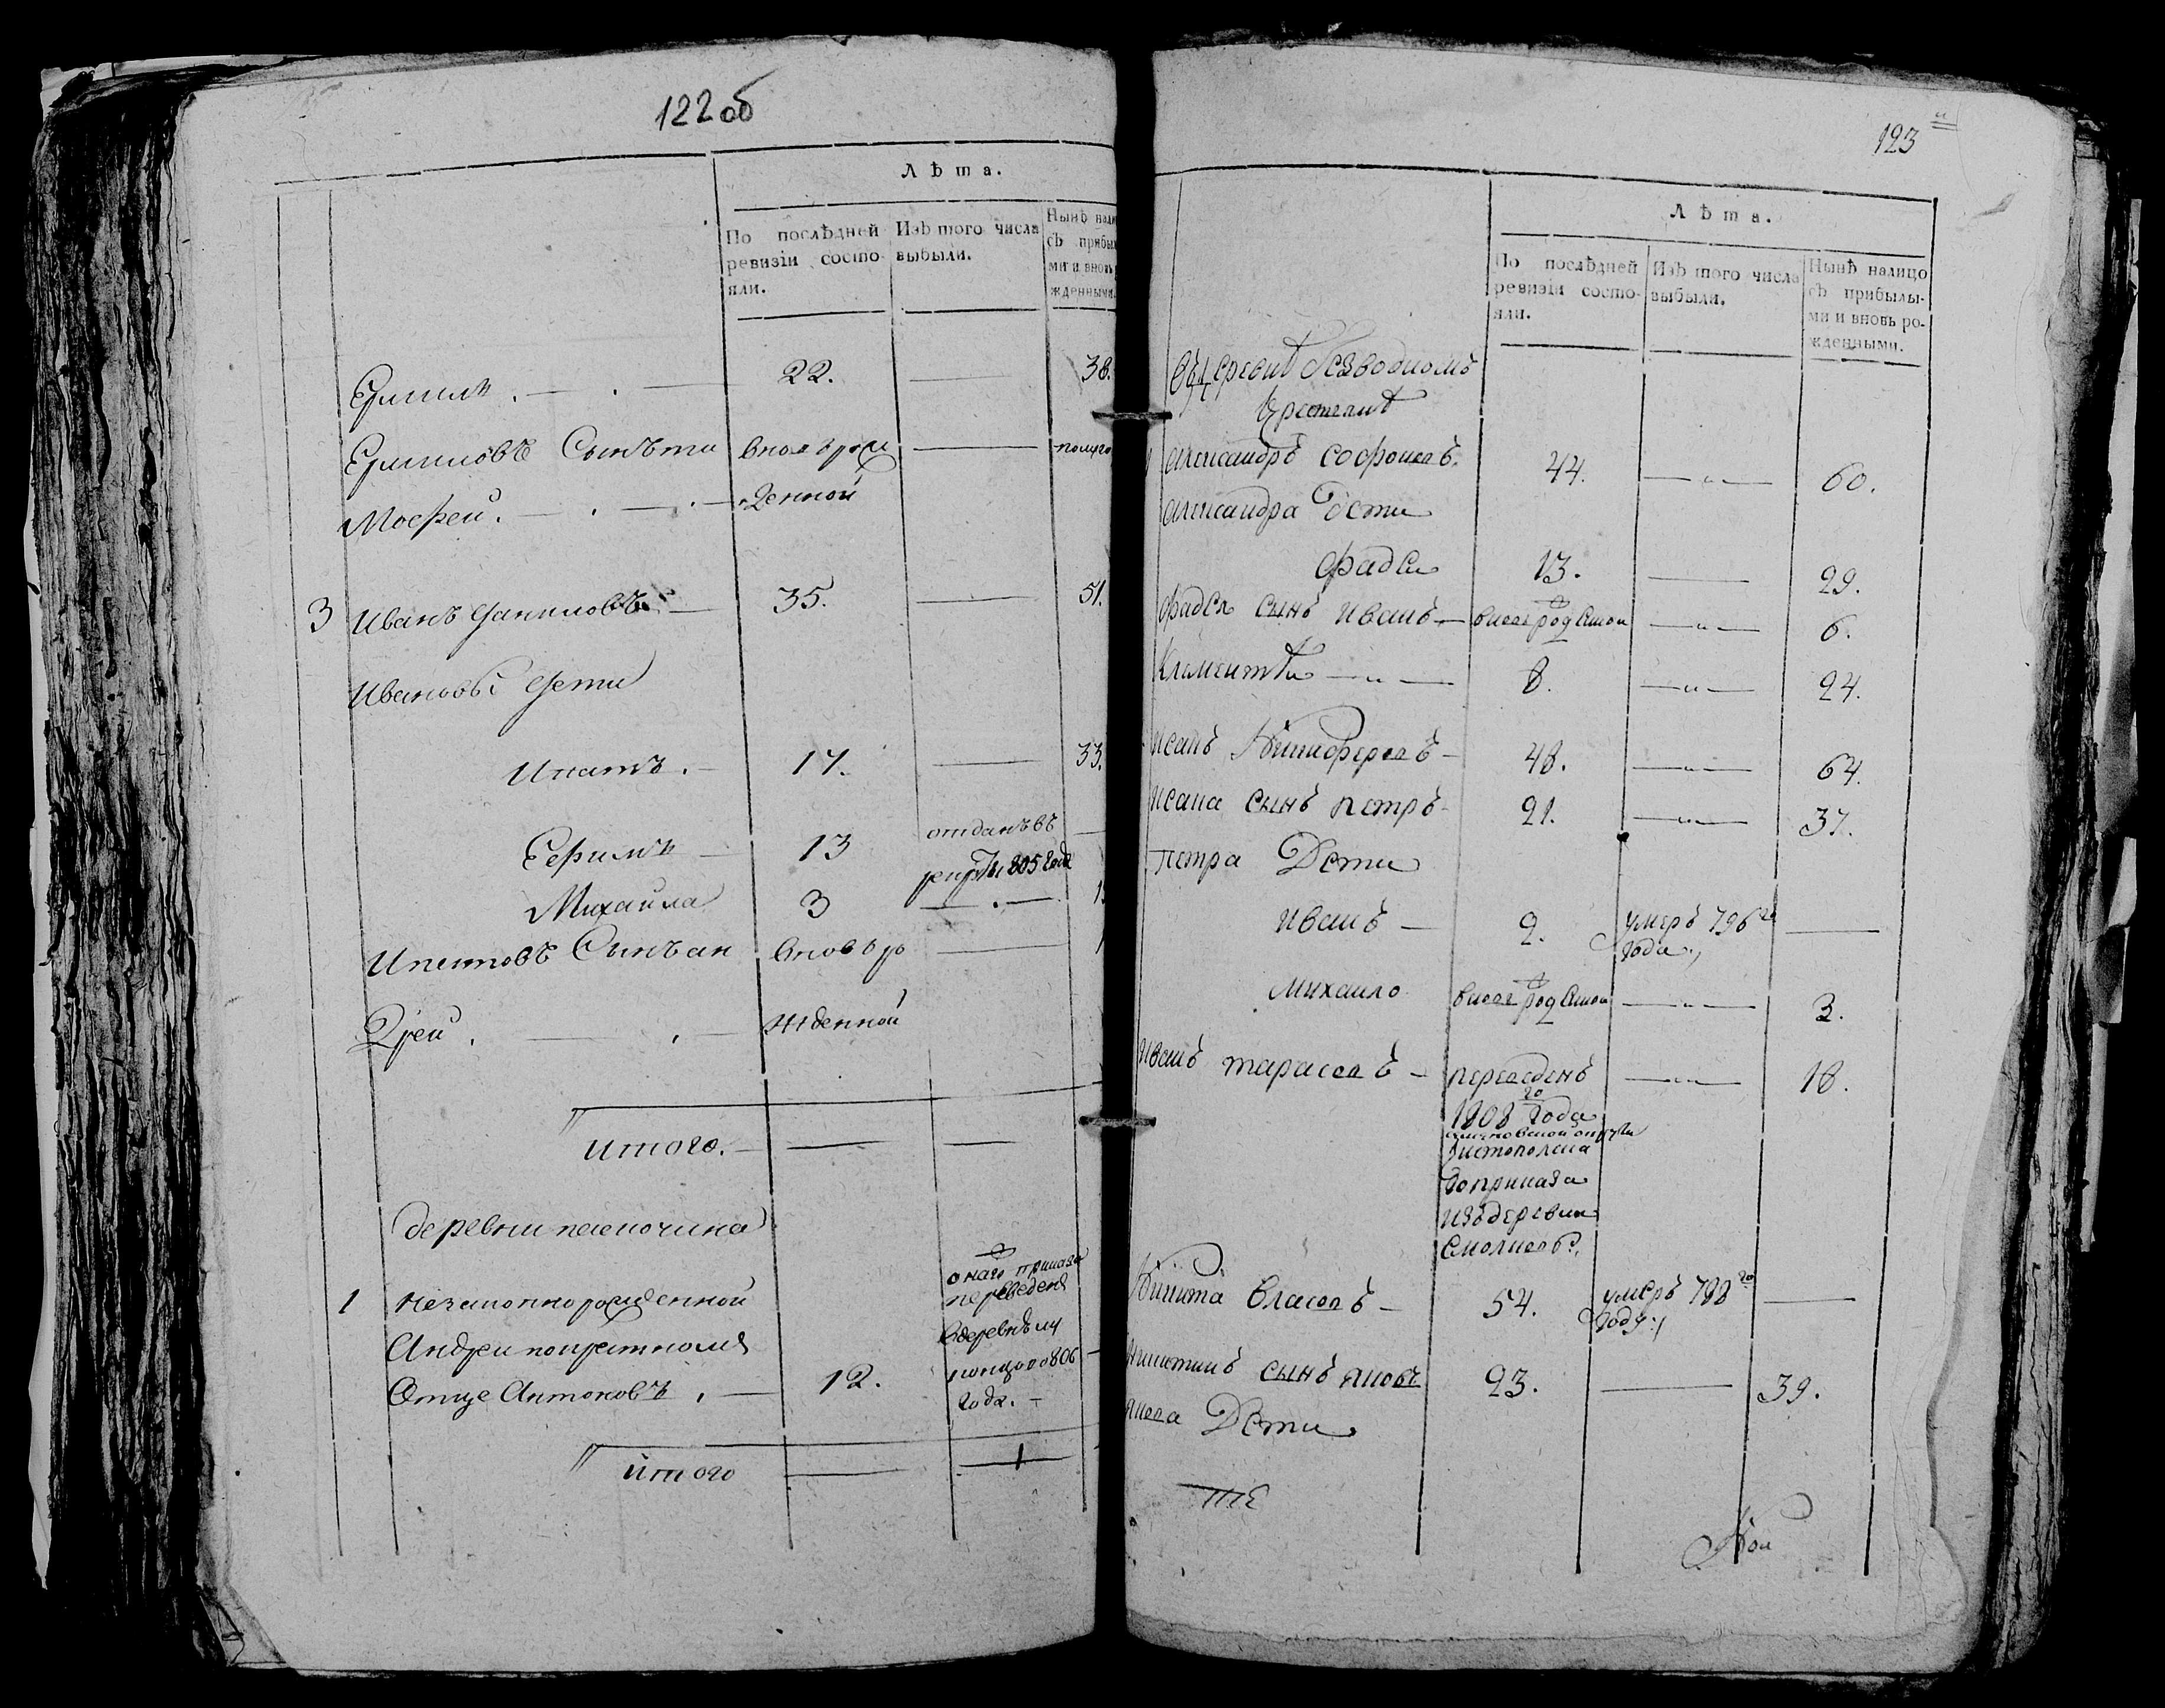 122 об
Лѣта.
По послѣдней ревизіи состояли.
Изъ того числа выбыли.
Нынѣ нали
съ прибы
ми и вновь
жденными.
Ермилъ . — . — 22. — 38.
Ермиловъ Сынъ ти вновь ро — полуго
Мофеи . — . — . — жденной
3 Иванъ Даниловъ — 35. — 51.
Ивановы дети
Ипатъ . — 17. — 33.
Ефимъ — 13 отданъ въ —
рекруты 805 года
Михаила 3 — . —
Ипатовъ Сынъ ан вновь ро — 1
Дреи . — , — жденной
итого. — — —
деревни
1 незаконно рожденной
Андреи по
Отце Антоновъ , — 12.
онаго приказа
переведенъ
въ деревню
806
года. —
итого — 1
123
Лѣта.
По послѣдней ревизіи состояли.
Изъ того числа выбыли.
Нынѣ налицо съ прибылыми и вновь рожденными.
Въ деревне
Крестьяне
Александръ Софоновъ. 44. — " — 60.
Александра Дети
Фадеи 13. — 29.
Фадея сынъ Иванъ — вновь рожденои — " — 6.
Клементеи — " — 8. — " — 24.
Исаиъ Никифоровъ — 48. — " — 64.
Исаиа сынъ петръ — 21. — " — 37.
петра Дети
Иванъ — 2. умеръ 796го —
года
Михаило вновь рожденои — " — 3.
Иванъ тарасовъ — переведенъ — " — 18.
1808го года
приказа
изъ деревни
Никита власовъ — 54. умеръ 798го —
года
Никитинъ сынъ яковъ 23. — 39.
якова Дети